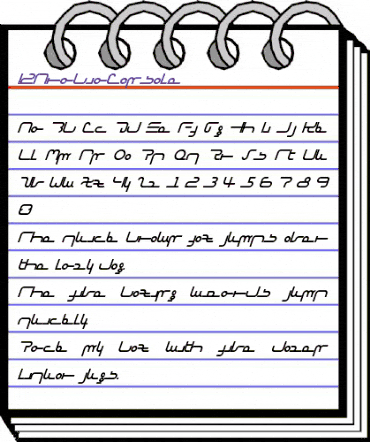 Aa Bb Cc Dd Ee Ff Gg Hh Ii Jj Kk
Ll Mm Nn Oo Pp Qq Rr Ss Tt Uu
Vv Ww Xx Yy Zz 1 2 3 4 5 6 7 8 9
0
The quick brown fox jumps over
the lazy dog
The five boxing wizards jump
quickly
Pack my box with five dozen
liquor jugs.